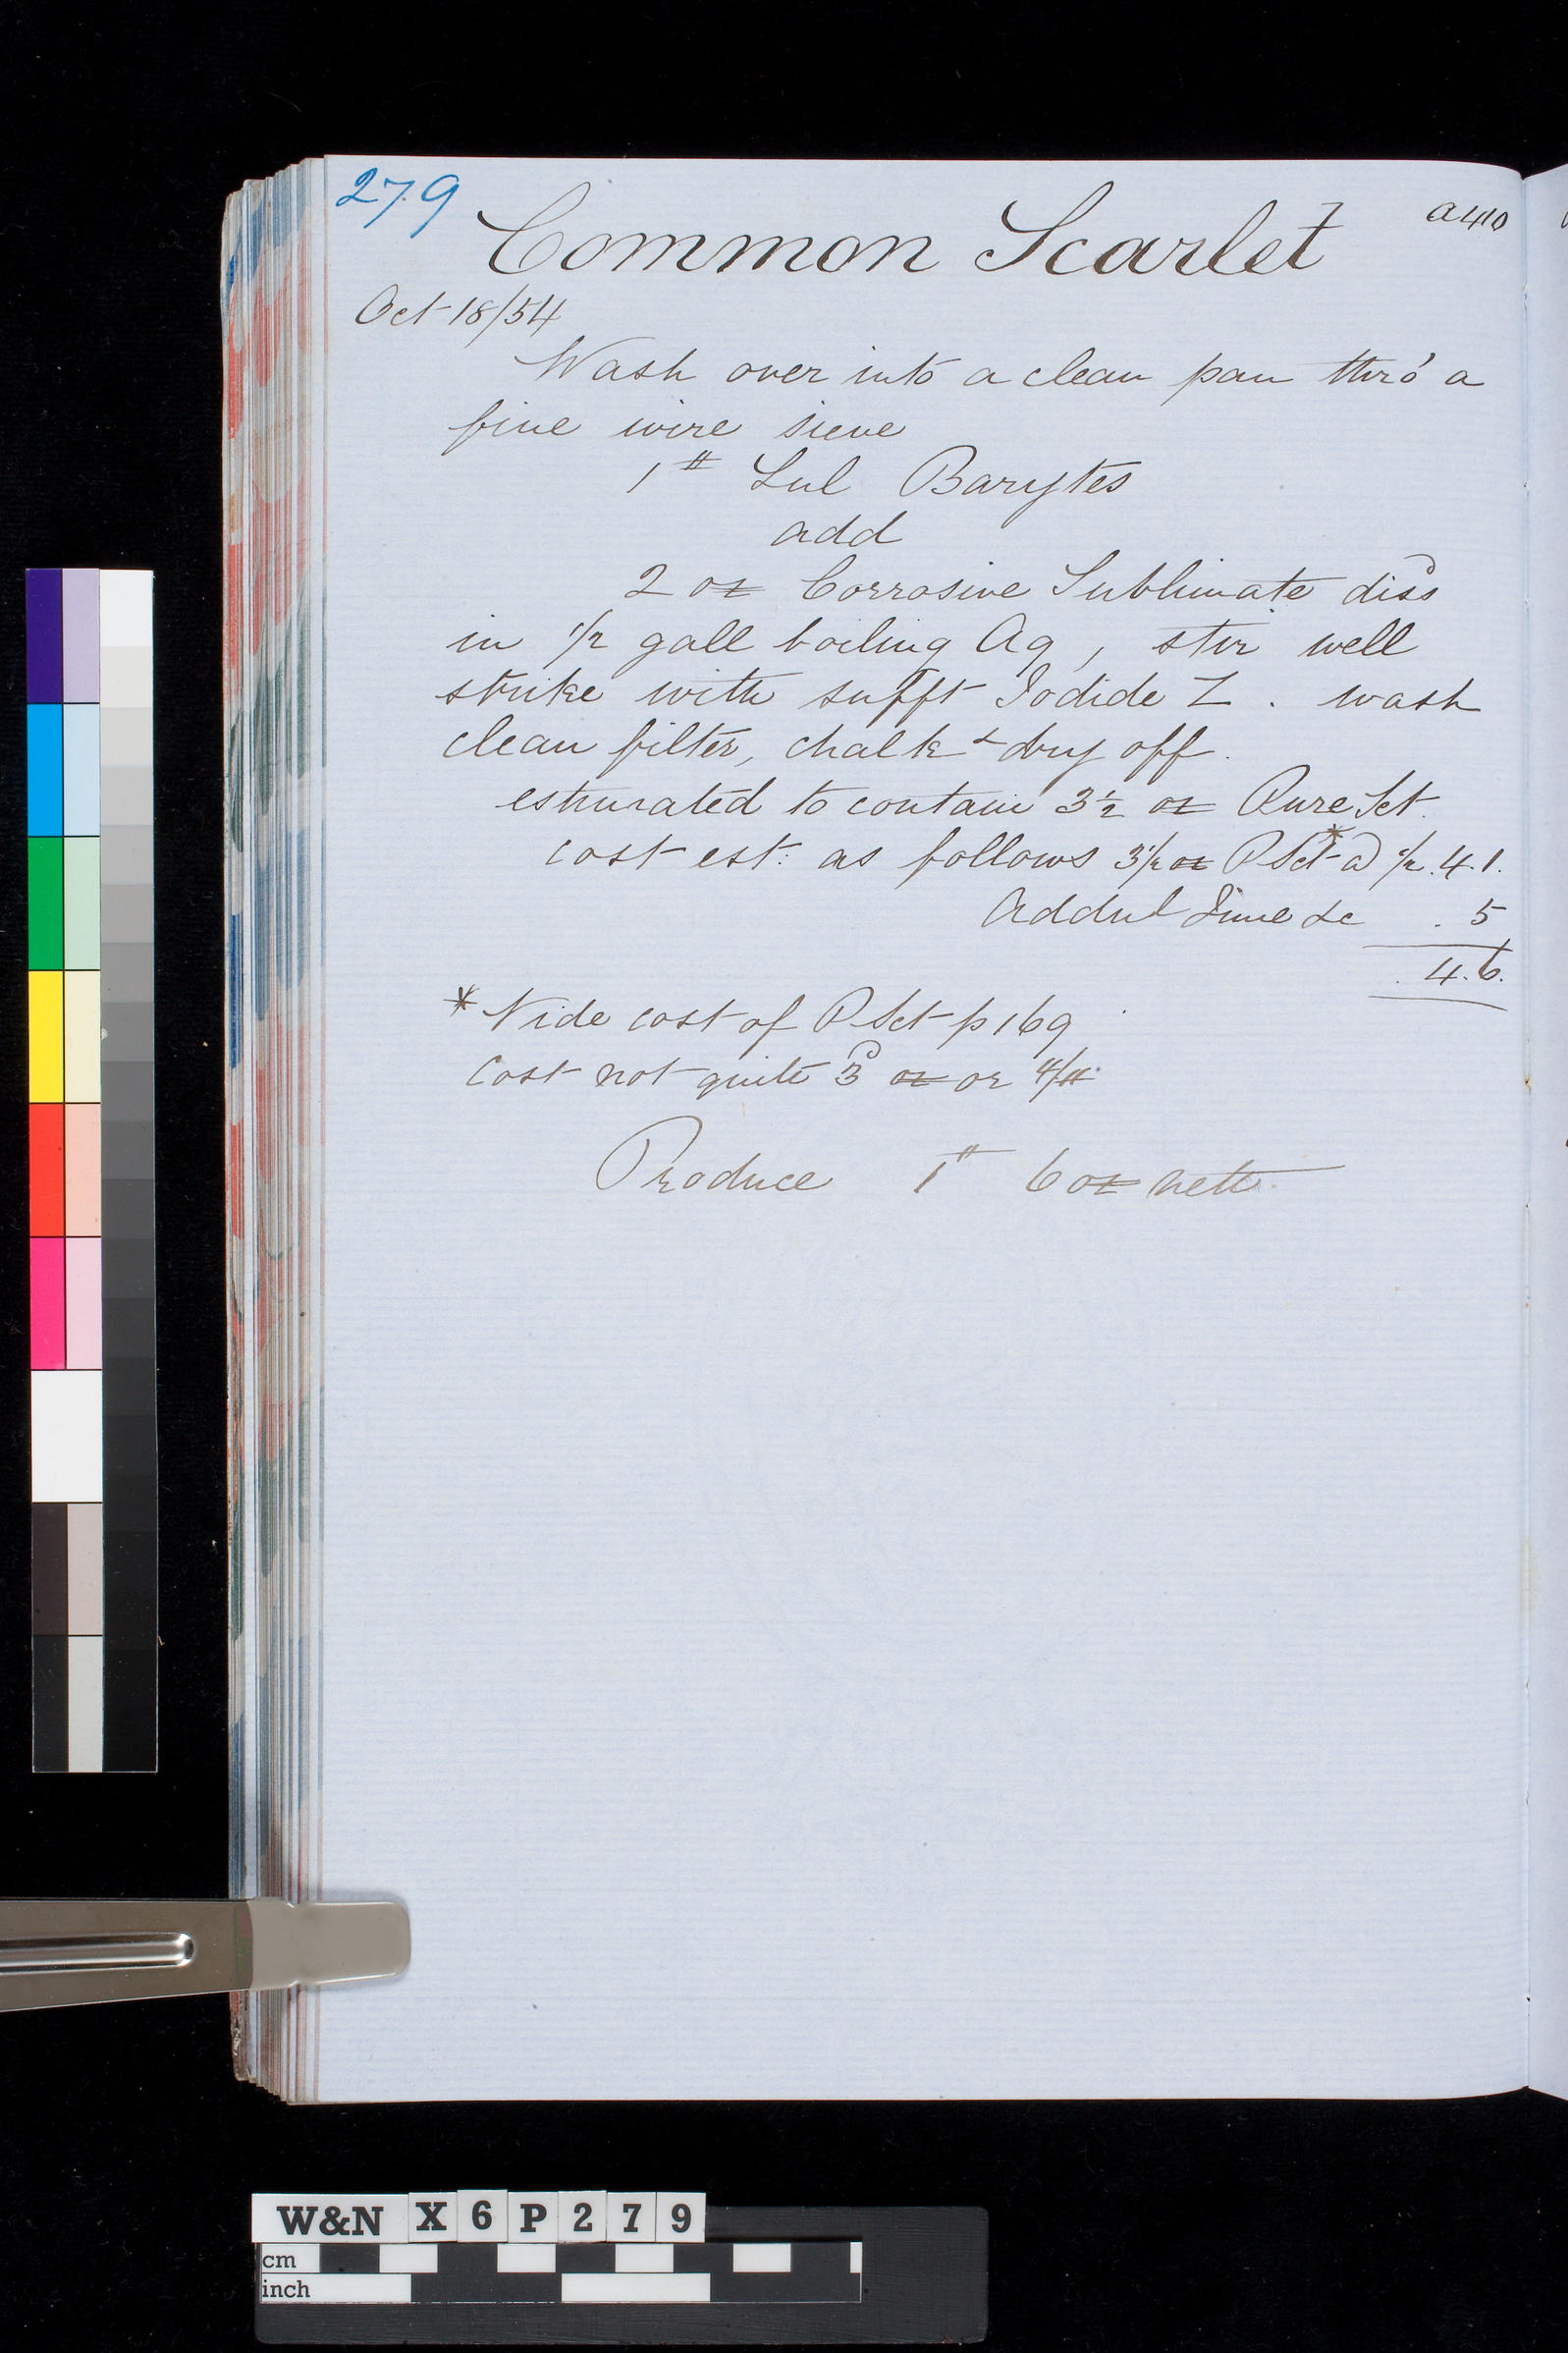 279
Common Scarlet
a410
Oct 18/54
Wash over into a clean pan thro' a
fine wire sieve
1 # Sul Barytes
add
2 oz Corrosive Sublimate diss^d
in 1/2 gall boiling Aq, stir well
strike with suff^t Iodide Z. wash
clean filter, chalk & dry off.
estimated to contain 3 1/2 oz Pure Sct.
cost est: as follows 3 1/2 oz P Sct* @ 1/2 . 4. 1.
Addnl Time &c . 5
4. 6.
* Vide cost of P Sct p 169
Cost not quite 3^d oz or 4/#.
Produce 1 # 6 oz nett.
W&N X6P279
cm
inch